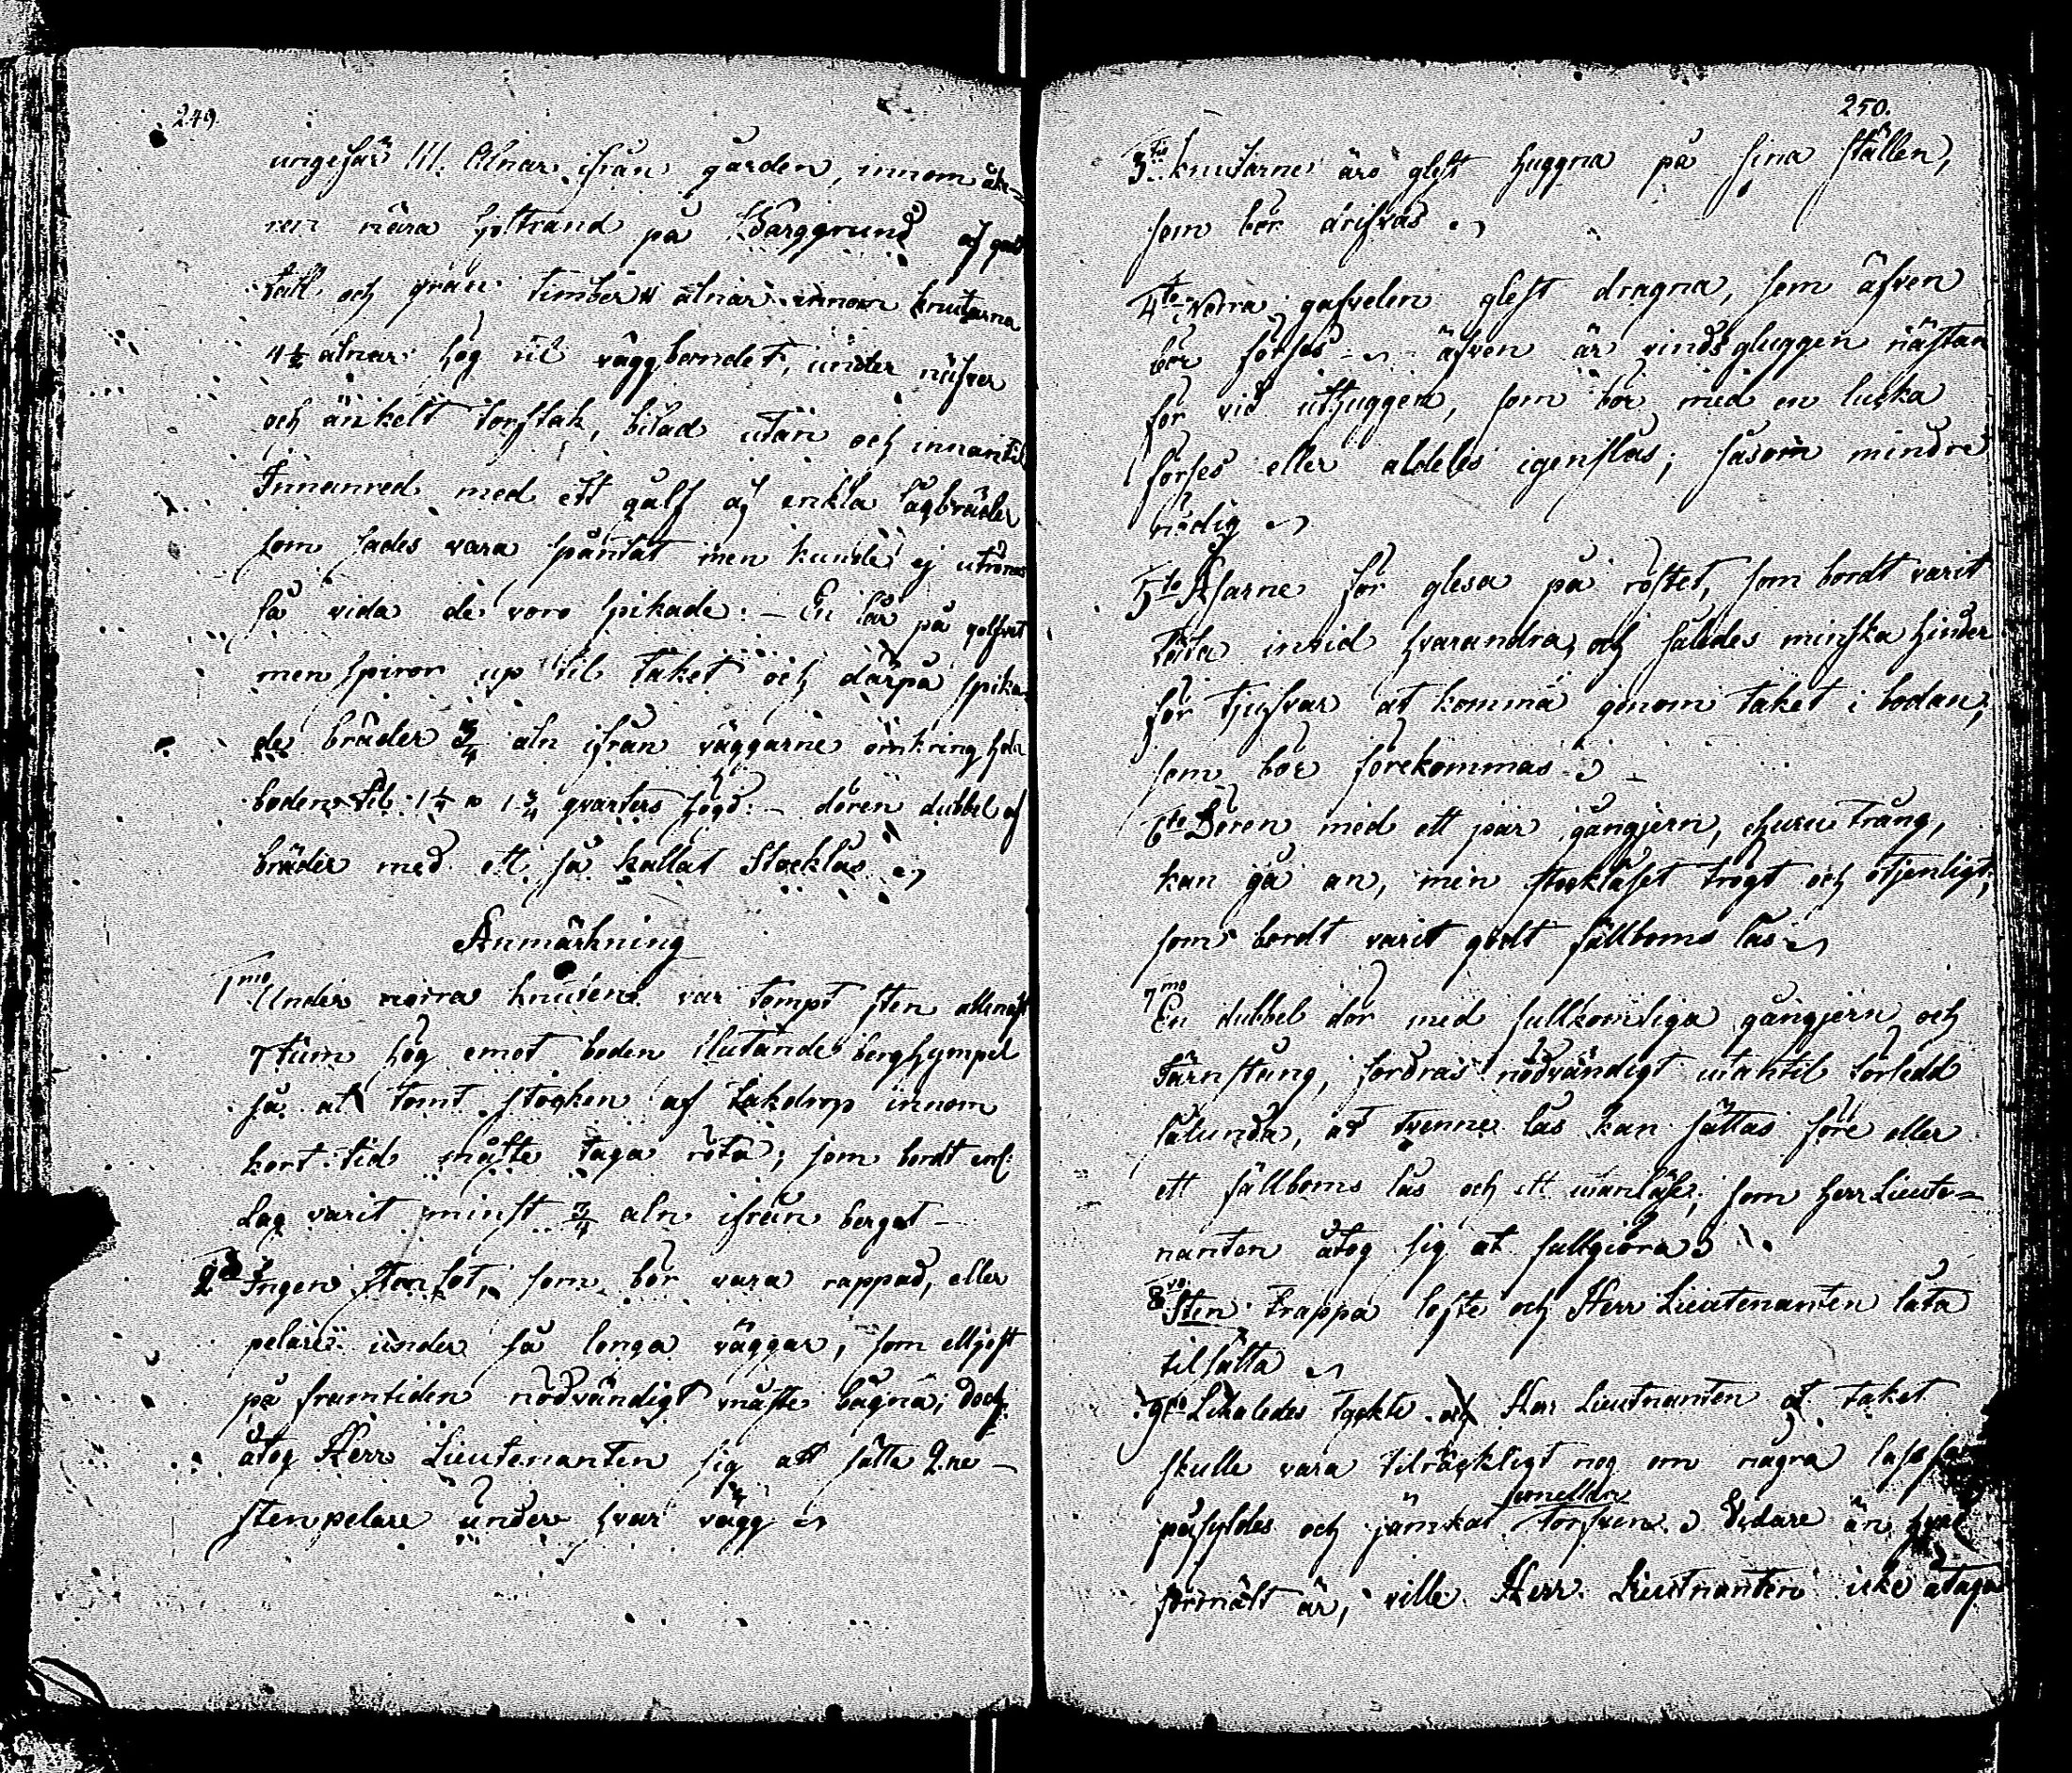 249.
ungefär 111. Alnar ifrån gården, innom åke-
ren nära sjöstrand på Barggrund af godt
tall och gran timber 11 alnar innom knutarna
4 1/2 alnar hög til väggbandet, under näfver
och änkelt torftak, bilad utan och innantil
Innanred med ett gålf af enkla sågbräder
som sades vara spåntat men kunde ej utrönas
så vida de voro spikade. – En lår på golfvet
men spiror up til taket och därpå spika-
de bräder 3/4 aln ifrån väggarne omkring hela
boden til 1 1/4 a 1 3/4 qvarters högd. – dören dubbel af
bräder med ett så kallat Stocklås
Anmärkning
1mo Under norra knuten var tompt sten allenast
7 tum hög emot boden slutande berghympel
så at tomt stocken af takdrop innom
kort tid måste taga röta; som bordt enl:
Lag varit minst 3/4 aln ifrån berget –
2do Ingen stenfot, som bör vara rappad, eller
pelare under så longa väggar, som elljest
på framtiden nödvändigt måste bågna; doch
åtog Herr Lieutenanten sig att sätta 2.ne –
stenpelare under hvar vägg
250.
3tio knutarne äro glest huggna på sina ställen,
som bör drifvas
4to Norra gafvelen glest dragna, som äfven
bör förses – äfven är vindsgluggen nästan
för vid uthuggen, som bör med en lucka
förses eller aldeles igenslås; såsom mindre
nödig
5to Åsarne för glesa på röstet, som bordt varit
täta invid hvarandra, och således minska hinder
för tjufvar at komma genom taket i bodan;
som bör förekommas –
6to Dören med ett par gångjern, ehuru trång,
kan gå an, men stocklåset trögt och otjenligt;
som bordt varit godt fällboms lås
7mo En dubbel dör med fullkomliga gångjern och
Järnstång, fordras nödvändigt utantil
sålunda, at tvenne lås kan sättas före eller
ett fällboms lås och ett utanlåse; som herr Lieute-
nanten åtog sig at fullgiöra
8vo Sten trappa lofte och Herr Lieutenanten låta
tilsätta
9no Likaledes tyckte och Herr Lieutnanten at taket
skulle vara tilräckligt nog om några lass
påfyldes och jämkat
emellan
torfven. Vidare än hvad
förmält är, ville Herr Lieutnanten icke åtaga